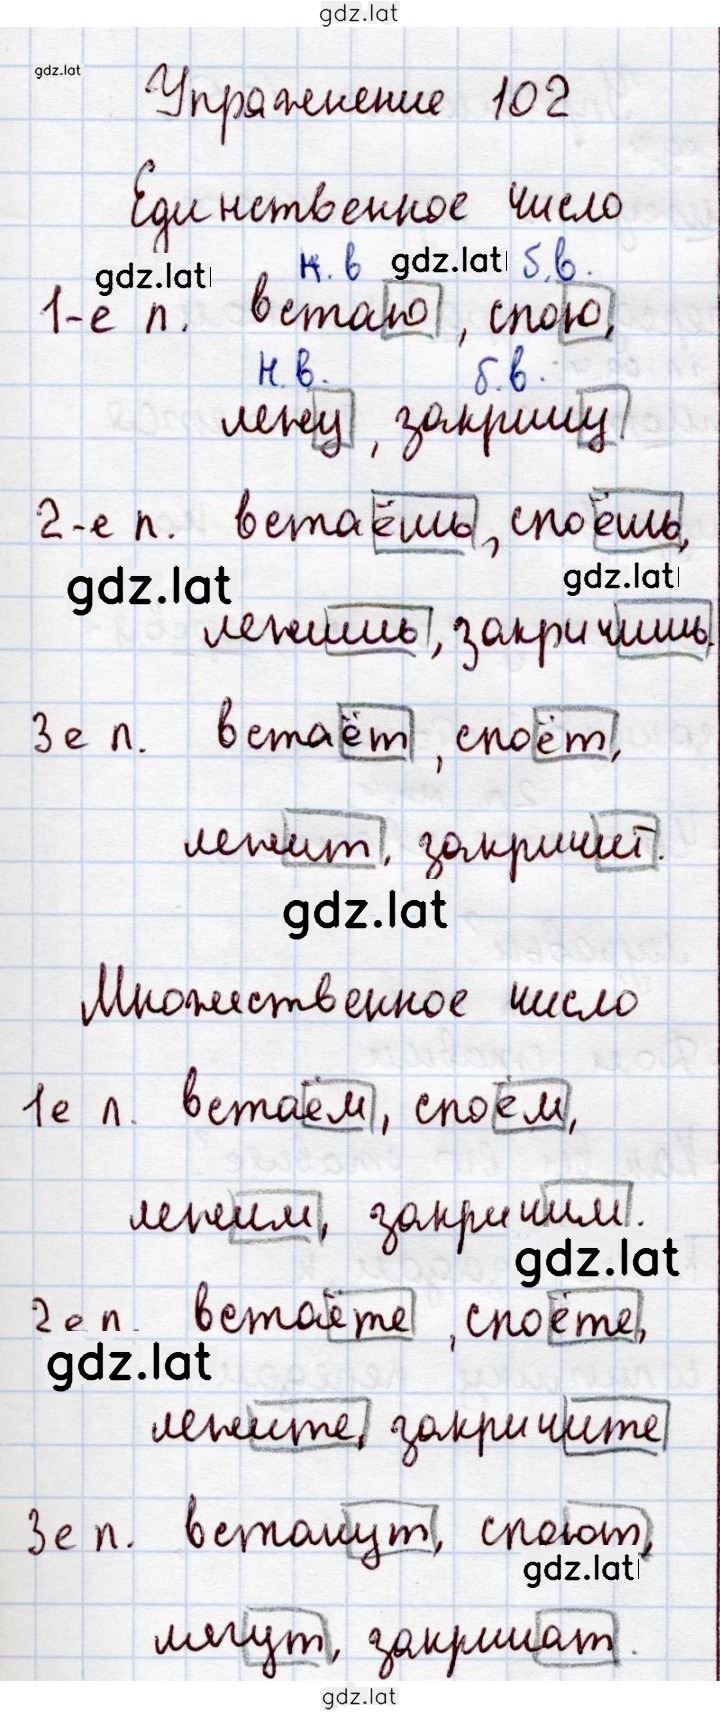 gdz.lat
gdz.lat
Упражнение 102
Единственное число
gdz.lat н.в gdz.lat б.в.
1-е л. встаю, спою,
н.в. б.в.
лежу, закричу
2-е л. встаёшь, споёшь,
gdz.lat gdz.lat
лежишь, закричишь.
3е л. встаёт, споёт,
лежит, закричит.
gdz.lat
Множественное число
1е л. встаём, споём,
лежим, закричим.
gdz.lat
2е л. встаёте, споёте,
gdz.lat
лежите, закричите
3е л. встанут, споют,
gdz.lat
лягут, закричат.
gdz.lat